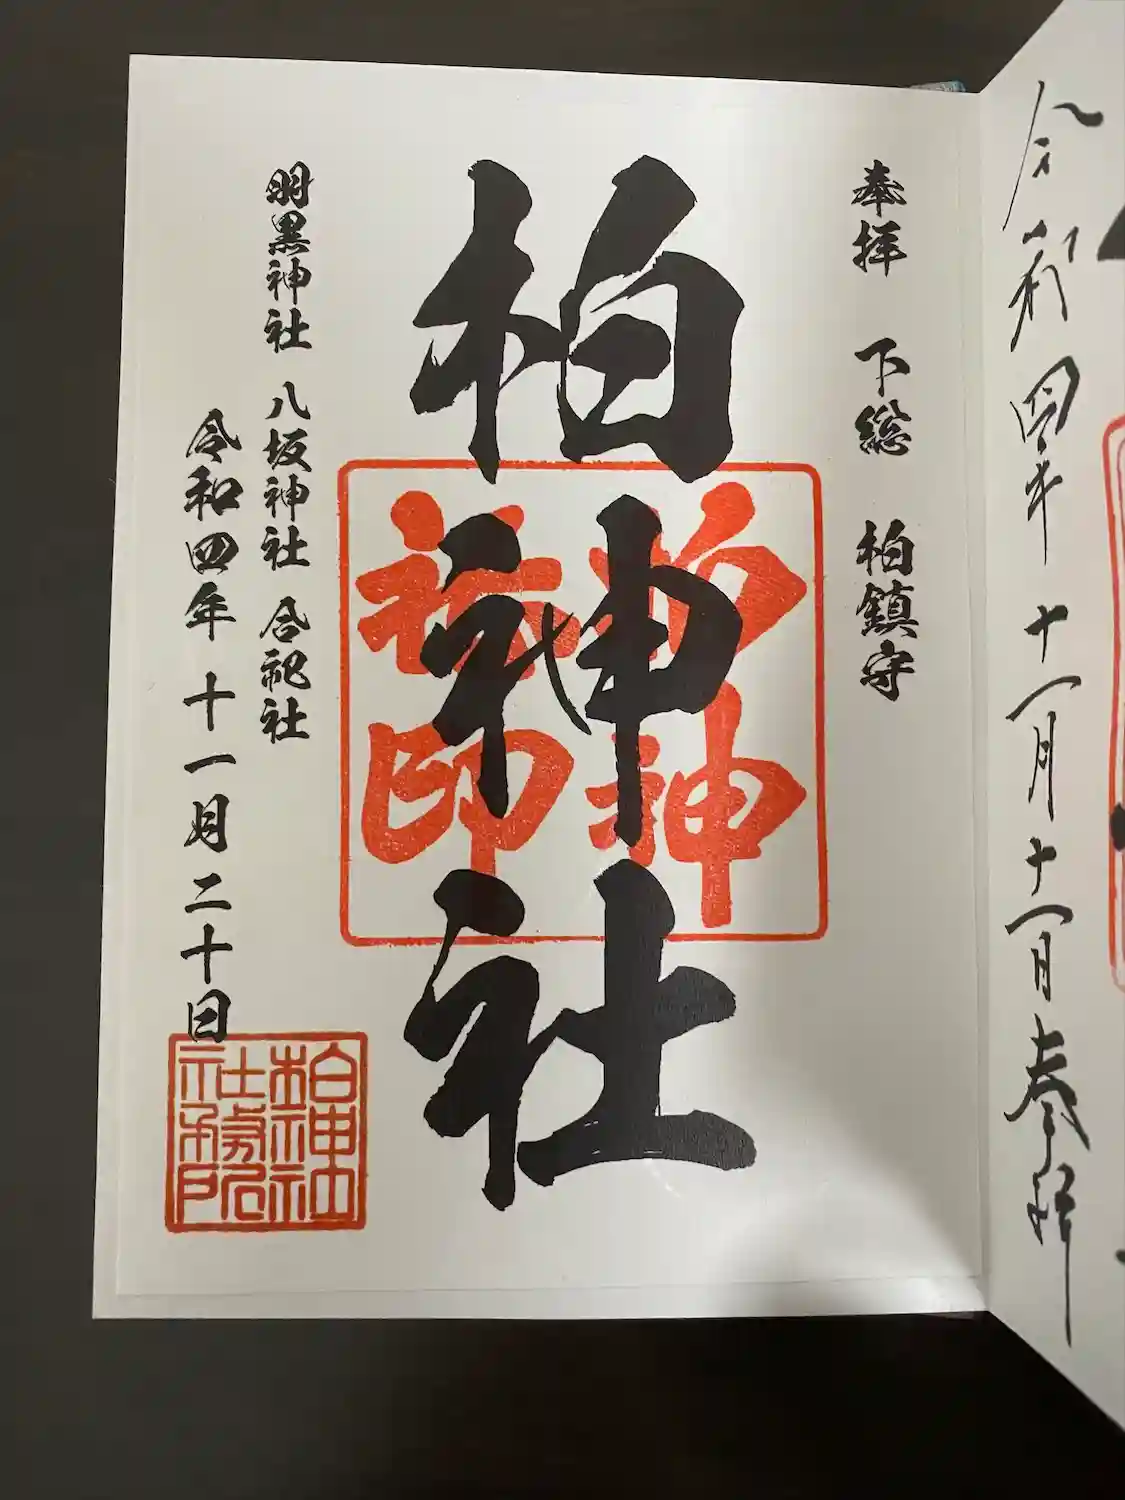 令和四年 十一月十一日 奉拝
奉拝 下総 柏鎮守
柏神社
柏神
社印
羽黒神社 八坂神社 合祀社
令和四年 十一月二十日
柏神社
社務所